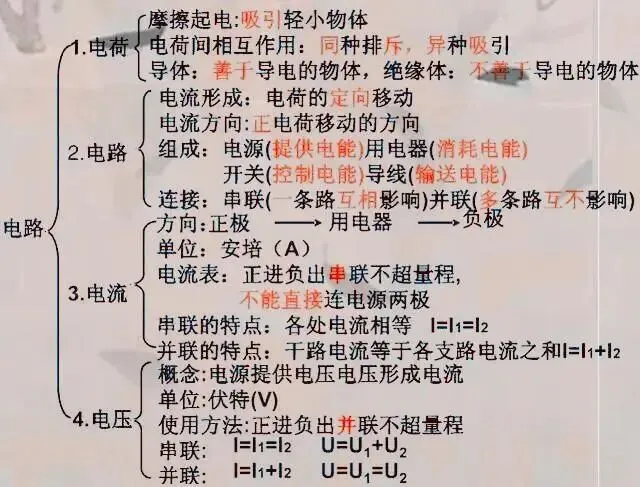 电路
1.电荷
摩擦起电:吸引轻小物体
电荷间相互作用：同种排斥，异种吸引
导体：善于导电的物体，绝缘体：不善于导电的物体
2.电路
电流形成：电荷的定向移动
电流方向:正电荷移动的方向
组成：电源(提供电能)用电器(消耗电能)
开关(控制电能)导线(输送电能)
连接：串联(一条路互相影响)并联(多条路互不影响)
3.电流
方向:正极 → 用电器 → 负极
单位：安培（A）
电流表：正进负出串联不超量程,
不能直接连电源两极
串联的特点：各处电流相等 I=I₁=I₂
并联的特点：干路电流等于各支路电流之和I=I₁+I₂
4.电压
概念:电源提供电压电压形成电流
单位:伏特(V)
使用方法:正进负出并联不超量程
串联: I=I₁=I₂ U=U₁+U₂
并联: I=I₁+I₂ U=U₁=U₂